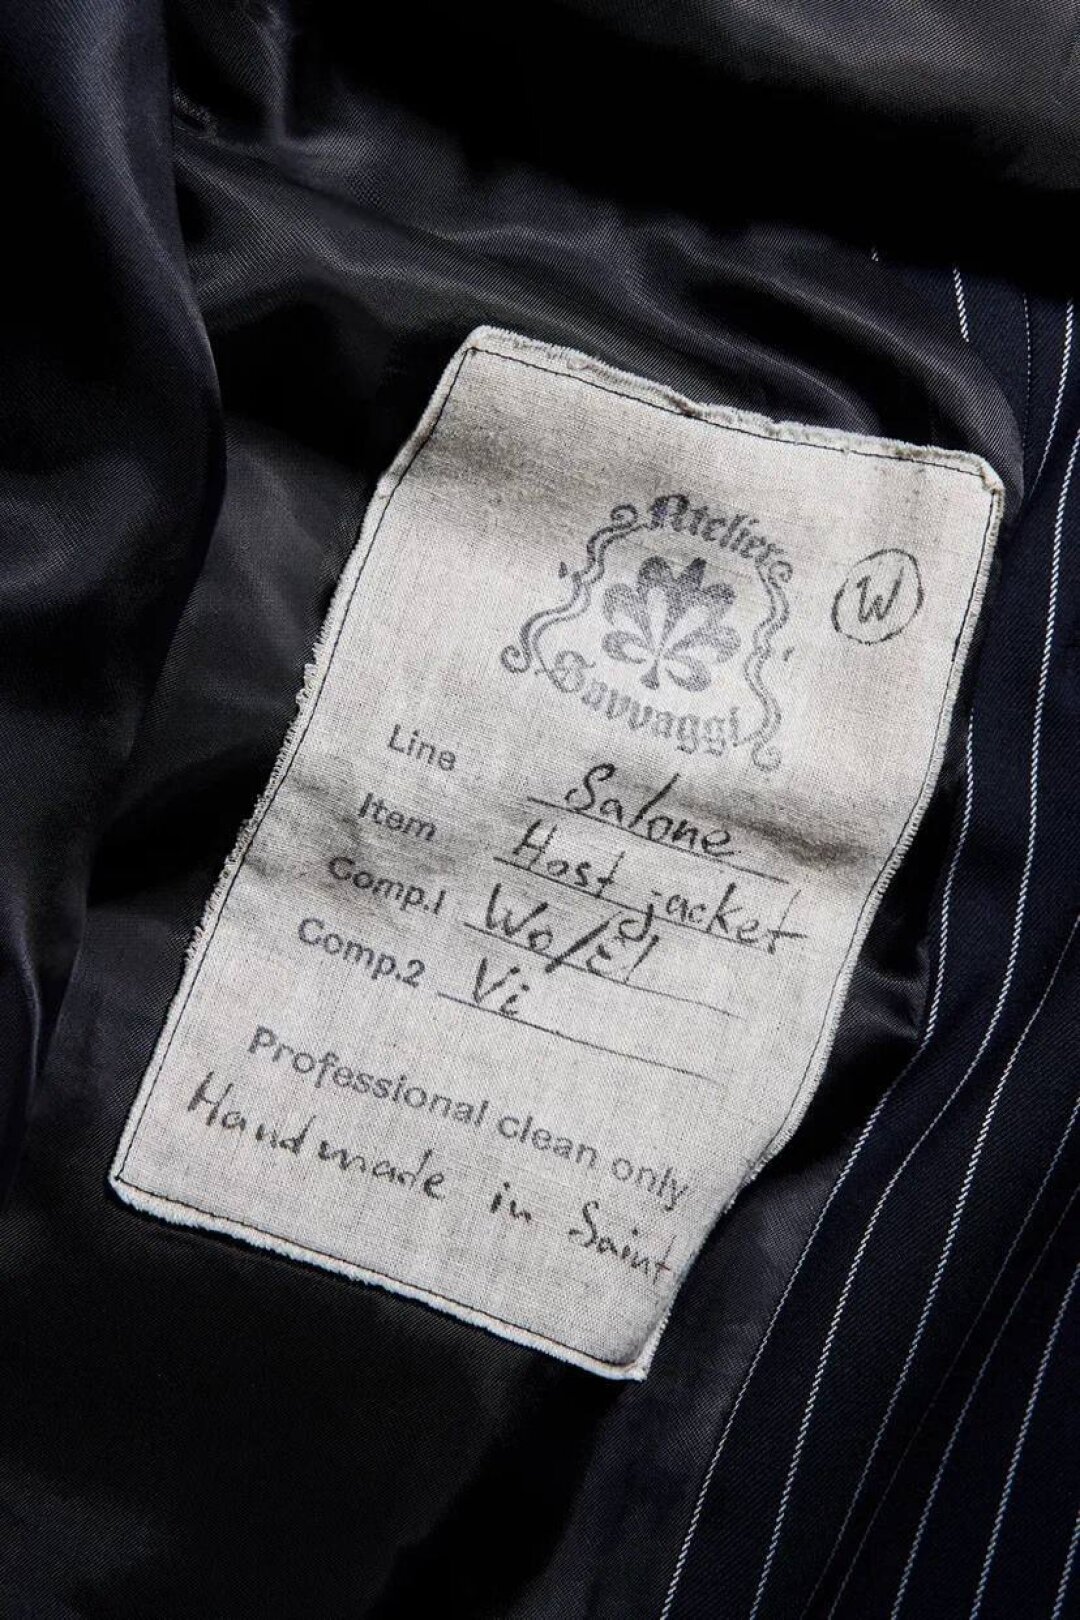 Atelier
Savvaggi
W
Line Salone
Item Host jacket
Comp.1 Wo/El
Comp.2 Vi
Professional clean only
Handmade in Saint